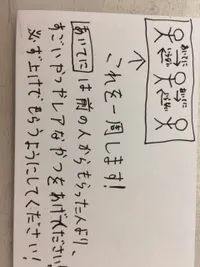 あいてに
あいてに
これを一周します!
あいてには前の人からもらった人より、
すごいやつやレアなやつをあげてください!
必ず上げてもらうようにしてください!